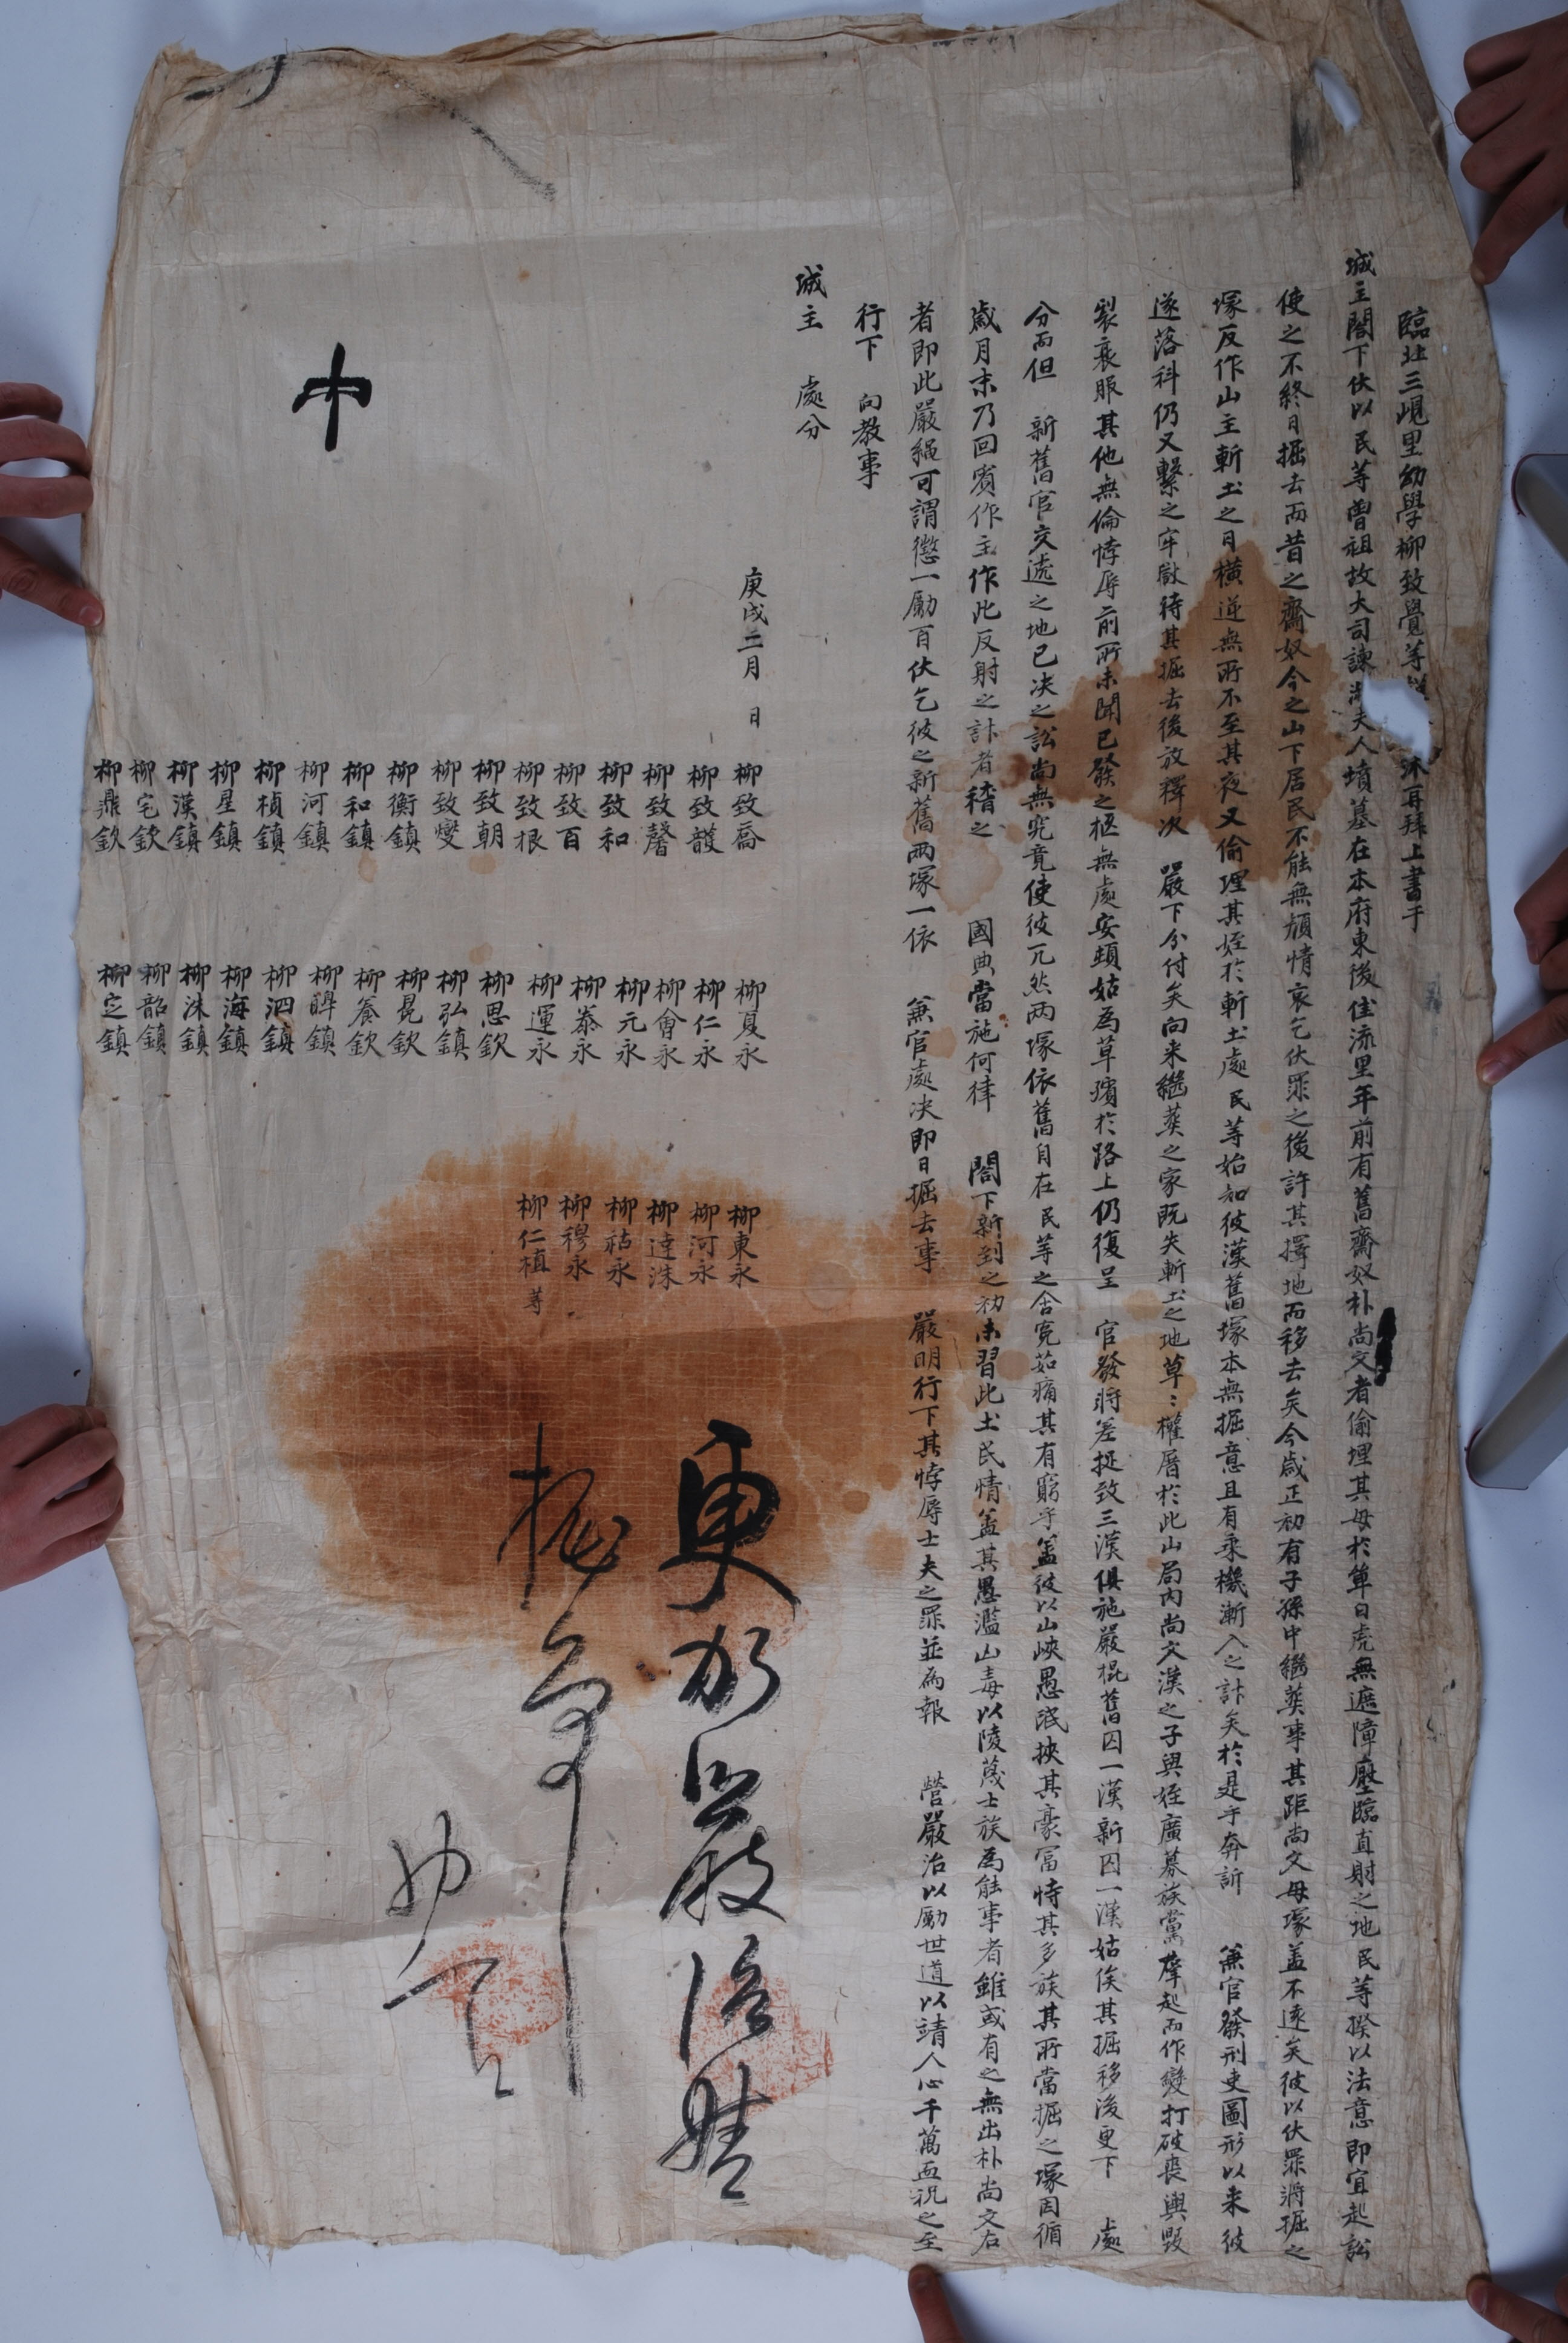 臨北三峴里幼學柳致覺等 沐再拜上書于
城主閤下伏以民等曾祖故大司諫 夫人墳墓在本府東後佳流里年前有舊齋奴朴尙文者偸埋其母於單白虎無遮障壓臨直射之地民等揆以法意卽宜起訟
使之不終日掘去而昔之齋奴今之山下居民不能無顧情哀乞伏罪之後許其擇地而移去矣今歲正初有子孫中繼葬事其距尙文母塚盖不遠矣彼以伏罪將掘之
塚反作山主斬土之日橫逆無所不至其夜又偸埋其姪於斬土處民等始知彼漢舊塚本無掘意且有乘機漸入之計矣於是乎奔訴 兼官發刑吏圖形以來彼
遂落科仍又繫之牢獄待其掘去後放釋次 嚴下分付矣向來繼葬之家旣失斬土之地草:權厝於此山局內尙文漢之子與姪廣募族黨羣起而作變打破喪輿毁
裂衰服其他無倫悖辱前所未聞已發之柩無處安頓姑爲草殯於路上仍復呈 官發將差捉致三漢俱施嚴棍舊囚一漢新囚一漢姑俟其掘移後更下 處
分而但 新舊官交遞之地已决之訟尙無究竟使彼兀然兩塚依舊自在民等之含寃茹痛其有窮乎盖彼以山峽愚氓挾其豪富恃其多族其所當掘之塚因循
歲月末乃回賓作主作此反射之計者稽之 國典當施何律 閤下新到之初未習此土民情盖其愚濫山毒以陵蔑士族爲能事者雖或有之無出朴尙文右
者卽此嚴繩可謂懲一勵百伏乞彼之新舊兩塚一依 兼官處决卽日掘去事 嚴明行下其悖辱士夫之罪並爲報 營嚴治以勵世道以靖人心千萬血祝之至
行下 向敎事
城主 處分
庚戌二月 日
柳致喬 柳夏永 柳東永
柳致頀 柳仁永 柳河永
柳致馨 柳會永 柳達洙
柳致和 柳元永 柳祜永
柳致百 柳泰永 柳穆永
柳致根 柳運永 柳仁植 等
柳致朝 柳思欽
柳致燮 柳弘鎭
柳衡鎭 柳晃欽
柳和鎭 柳養欽
柳河鎭 柳睥鎭
柳楨鎭 柳泗鎭
柳星鎭 柳海鎭
柳漢鎭 柳洙鎭
柳宅欽 柳韶鎭
柳鼎欽 柳定鎭
更加嚴治